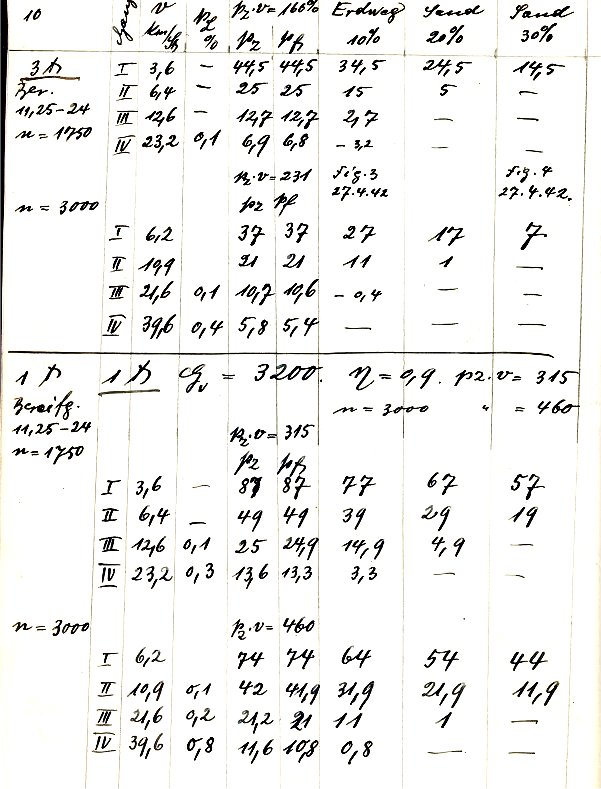 10 Gang v km/h pL % pz·v=160% pz pf Erdweg 10% Sand 20% Sand 30%
3 to I 3,6 — 44,5 44,5 34,5 24,5 14,5
Ber. II 6,4 — 25 25 15 5 —
11,25-24 III 12,6 — 12,7 12,7 2,7 — —
n = 1750 IV 23,2 0,1 6,9 6,8 -3,2 — —
pz·v=231 Fig. 3 Fig. 4
n = 3000 pz pf 27.4.42 27.4.42.
I 6,2 37 37 27 17 7
II 10,9 21 21 11 1 —
III 21,6 0,1 10,7 10,6 -0,4 — —
IV 39,6 0,4 5,8 5,4 — — —
1 to 1 to Gv = 3200. η = 0,9. pz·v = 315
Bereifg. n = 3000 " = 460
11,25-24 pz·v=315
n = 1750 pz pf
I 3,6 — 87 87 77 67 57
II 6,4 — 49 49 39 29 19
III 12,6 0,1 25 24,9 14,9 4,9 —
IV 23,2 0,3 13,6 13,3 3,3 — —
n = 3000 pz·v=460
I 6,2 74 74 64 54 44
II 10,9 0,1 42 41,9 31,9 21,9 11,9
III 21,6 0,2 21,2 21 11 1 —
IV 39,6 0,8 11,6 10,8 0,8 — —